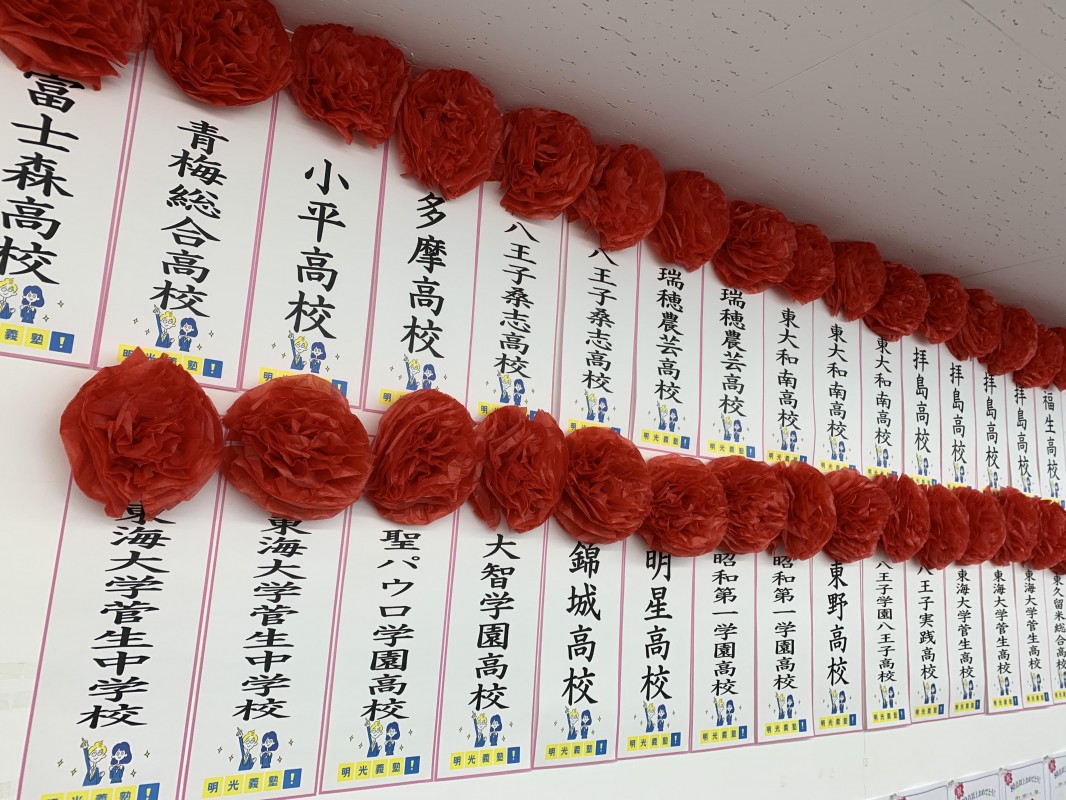 富士森高校
義塾!
青梅総合高校
明光義塾!
小平高校
多摩高校
八王子桑志高校
八王子桑志高校
瑞穂農芸高校
明光義塾!
瑞穂農芸高校
明光義塾!
東大和南高校
明光義塾
東大和南高校
明光義塾
東大和南高校
拝島高校
拝島高校
拝島高校
拝島高校
福生高校
東海大学菅生中学校
明光義塾!
東海大学菅生中学校
明光義塾!
聖パウロ学園高校
明光義塾!
大智学園高校
明光義塾!
錦城高校
明光義塾!
明星高校
明光義塾!
昭和第一学園高校
明光義塾!
昭和第一学園高校
明光義塾!
東野高校
明光義塾!
八王子学園八王子高校
明光義塾!
八王子実践高校
明光義塾!
東海大学菅生高校
明光義塾!
東海大学菅生高校
東海大学菅生高校
東久留米総合高校